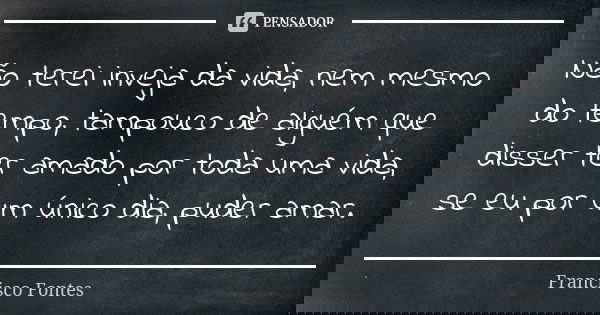 PENSADOR
Não terei inveja da vida, nem mesmo
do tempo, tampouco de alguém que
disser ter amado por toda uma vida,
se eu por um único dia, puder amar.
Francisco Fontes